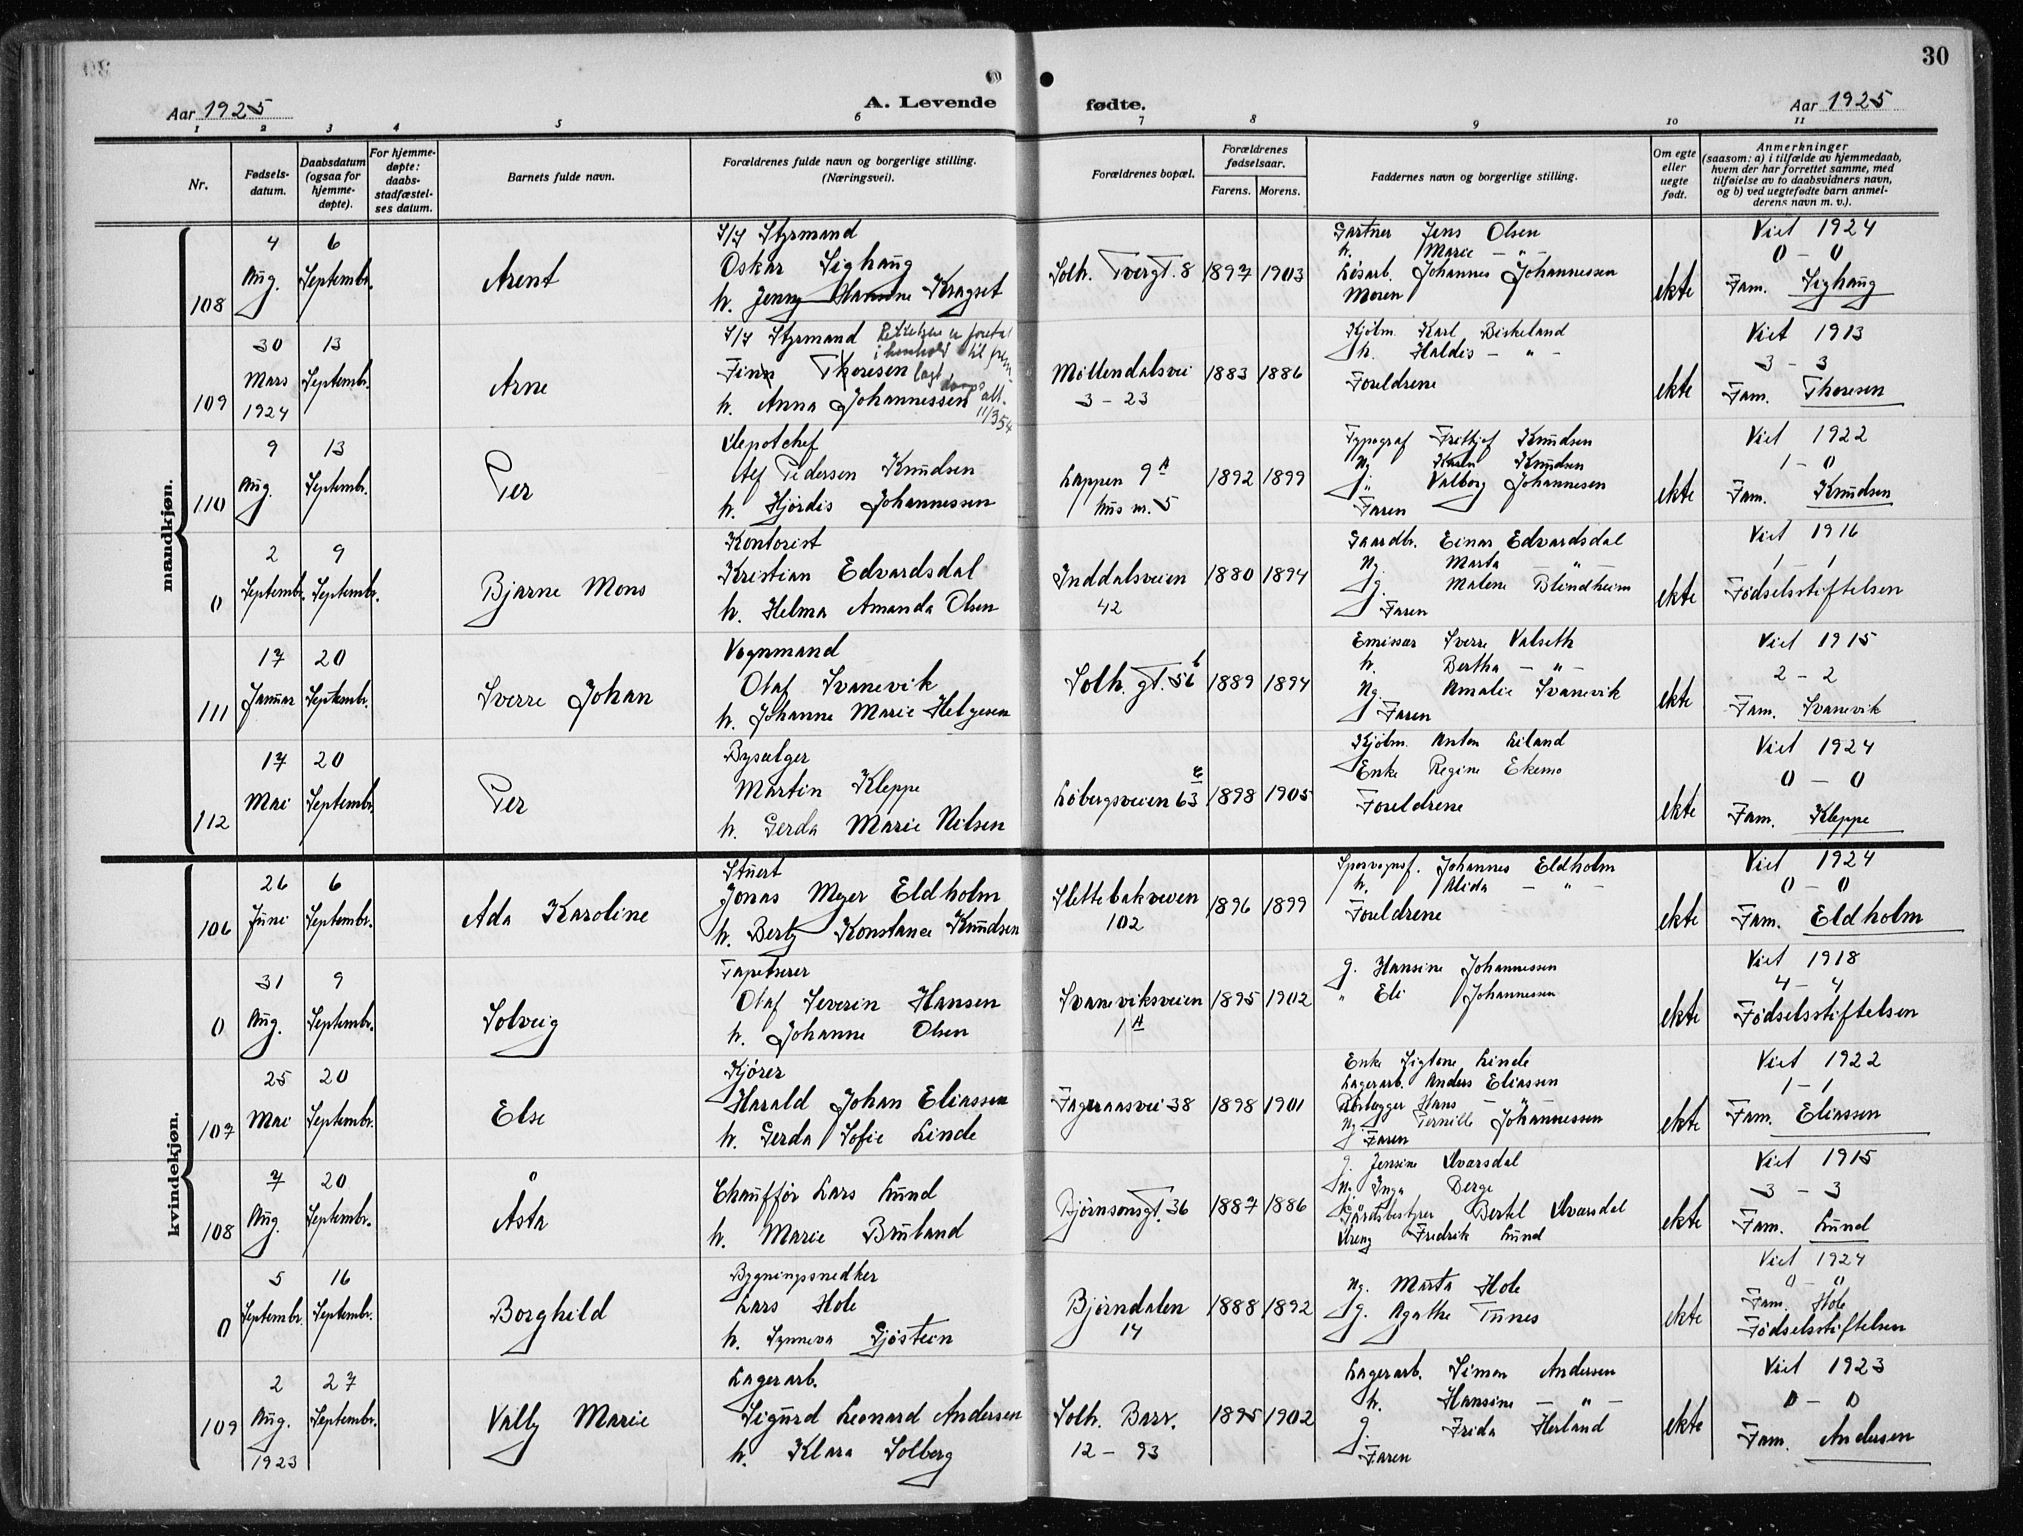 30
Aar 1925
A. Levende fødte.
Aar 1925
1 2 3 4 5 6 7 8 9 10 11
Nr.
Fødsels-
datum.
Daabsdatum
(ogsaa for
hjemme-
døpte).
For hjemme-
døpte:
daabs-
stadfæstel-
ses datum.
Barnets fulde navn.
Forældrenes fulde navn og borgerlige stilling.
(Næringsvei).
Forældrenes bopæl.
Forældrenes
fødselsaar.
Farens. Morens.
Faddernes navn og borgerlige stilling.
Om egte
eller
uegte
født.
Anmerkninger
(saasom: a) i tilfælde av hjemmedaab,
hvem der har forrettet samme, med
tilføielse av to daabsvidners navn,
og b) ved uegtefødte barn anmel-
derens navn m. v.).
mandkjøn.
108
4
Aug.
6
Septembr.
Arent
S/S Styrmand
Oskar Sighaug
h. Jenny Kragset
Solh. Tvergt. 8
1897 1903
Gartner Jens Olsen
h. Marie - " -
Løsarb. Johannes Johannessen
Moren
ekte
Viet 1924
0 - 0
Fam. Sighaug
109
30
Mars
1924
13
Septembr.
Arne
S/S Styrmand
Finn Thoresen
h. Anna Johannessen
Rettelsen er foretat
i henhold til frem-
lagt daaps att.
11/3 54
Möllendalsvei
3 - 23
1883 1886
Kjølm. Karl Birkeland
h. Haldis - " -
Foreldrene
ekte
Viet 1913
3 - 3
Fam. Thoresen
110
9
Aug.
13
Septembr.
Per
Depotchef
Alf Pedersen Knudsen
h. Hjördis Johannessen
Lappen 9A
hus nr. 5
1892 1899
Typograf Frithjof Knudsen
Ug. Karen Knudsen
g. Valborg Johannesen
Faren
ekte
Viet 1922
1 - 0
Fam. Knudsen
0
2
Septembr.
9
Septembr.
Bjarne Mons
Kontorist
Kristian Edvardsdal
h. Helma Amanda Olsen
Inddalsveien
42
1880 1894
Gaardbr. Einar Edvardsdal
Ug. Marta - " -
g. Malene Blindheim
Faren
ekte
Viet 1916
1 - 1
Fødselsstiftelsen
111
17
Januar
20
Septembr.
Sverre Johan
Vognmand
Olaf Svanevik
h. Johanne Marie Helgesen
Solh. gt. 56 b
1889 1894
Emissær Sverre Valseth
h. Bertha - " -
Ug. Amalie Svanevik
Faren
ekte
Viet 1915
2 - 2
Fam. Svanevik
112
17
Mai
20
Septembr.
Per
Byselger
Martin Kleppe
h. Gerda Marie Nilsen
Løbergsveien 63
1898 1905
Kjølm. Anton Liland
Enke Regine Ekemo
Foreldrene
ekte
Viet 1924
0 - 0
Fam. Kleppe
kvindekjøn.
106
26
Juni
6
Septembr.
Ada Karoline
Stuert
Jonas Meyer Eldholm
h. Berly Konstance Knudsen
Slettebakveien
102
1896 1899
Sporvognsf. Johannes Eldholm
h. Alida - " -
Foreldrene
ekte
Viet 1924
0 - 0
Fam. Eldholm
0
31
Aug.
9
Septembr.
Solveig
Tapetserer
Olaf Severin Hansen
h. Johanne Olsen
Svaneviksveien
1A
1895 1902
g. Hansine Johannessen
" Eli Johannessen
ekte
Viet 1918
4 - 4
Fødselsstiftelsen
107
25
Mai
20
Septembr.
Else
Kjører
Harald Johan Eliassen
h. Gerda Sofie Linde
Fageraasvei 38
1898 1901
Enke Sigtone Linde
Lagerarb. Anders Eliassen
Rørlægger Hans - " -
Ug. Pernille Johannessen
Faren
ekte
Viet 1922
1 - 1
Fam. Eliassen
108
7
Aug.
20
Septembr.
Åsta
Chauffør Lars Lund
h. Marie Bruland
Bjørnsonsgt. 36
1887 1886
g. Jensine Alvarsdal
Ug. Inga Berge
Gaardsbestyrer Bertel Alvarsdal
Dreng Fredrik Lund
ekte
Viet 1915
3 - 3
Fam. Lund
0
5
Septembr.
16
Septembr.
Borghild
Bygningssnedker
Lars Hole
h. Synneva Gjøstein
Bjørndalen
14
1888 1892
Ug. Marta Hole
g. Agathe Tunes
ekte
Viet 1924
0 - 0
Fam. Hole
Fødselsstiftelsen
109
2
Aug.
1923
27
Septembr.
Vally Marie
Lagerarb.
Sigurd Leonard Andersen
h. Klara Solberg
Solh. Barr.
12 - 93
1895 1902
Lagerarb. Simon Andersen
h. Hansine - " -
g. Frida Herland
Faren
ekte
Viet 1923
0 - 0
Fam. Andersen